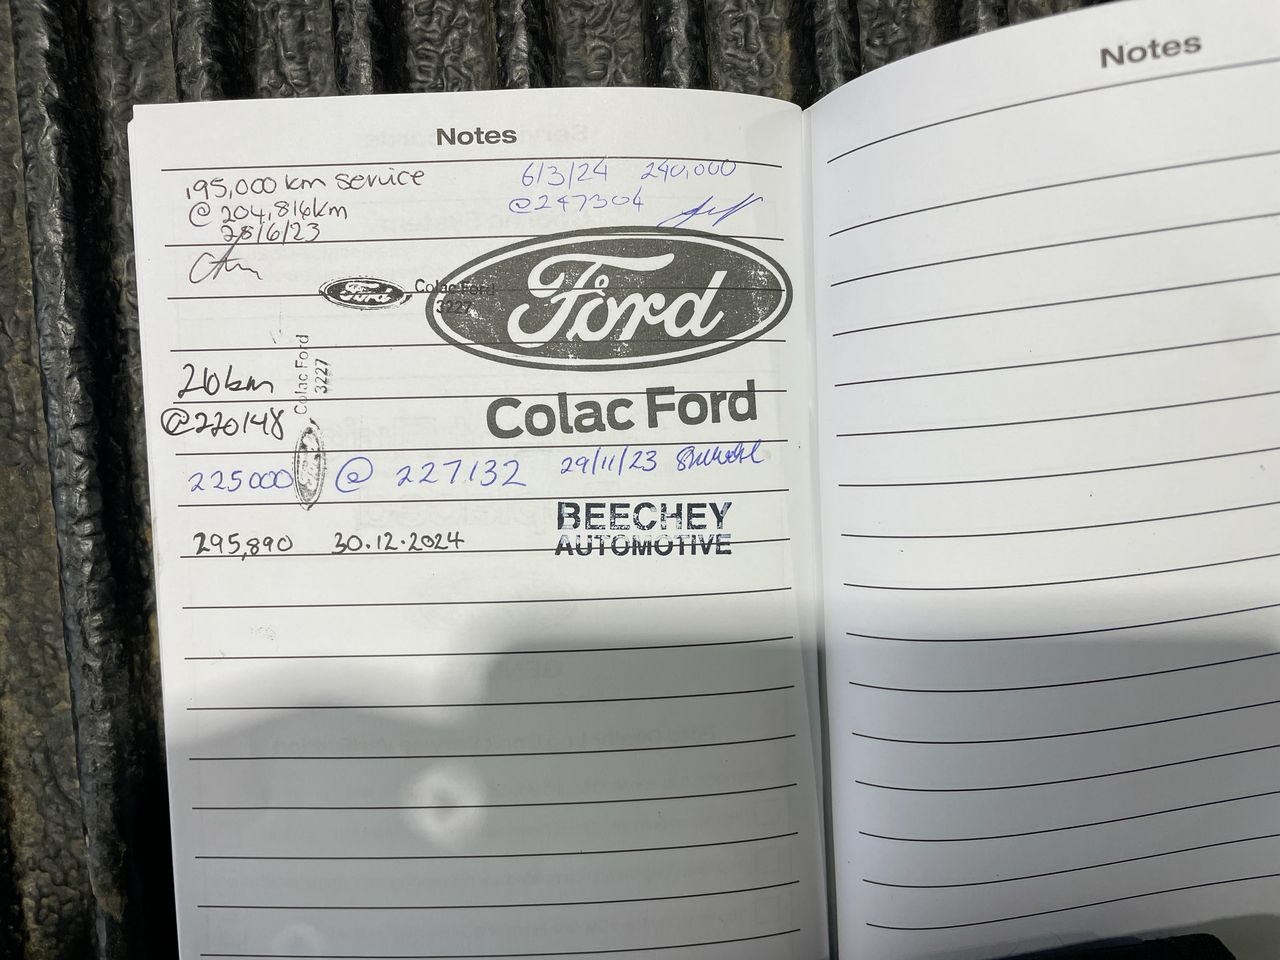 Notes
195,000 km service
@ 204,816km
28/6/23
6/3/24 240,000
@247304
Ford Colac Ford
3227
Ford
Colac Ford
210km
@220148
Colac Ford
3227
225000 @ 227132 29/11/23
295,890 30.12.2024
BEECHEY
AUTOMOTIVE
Notes